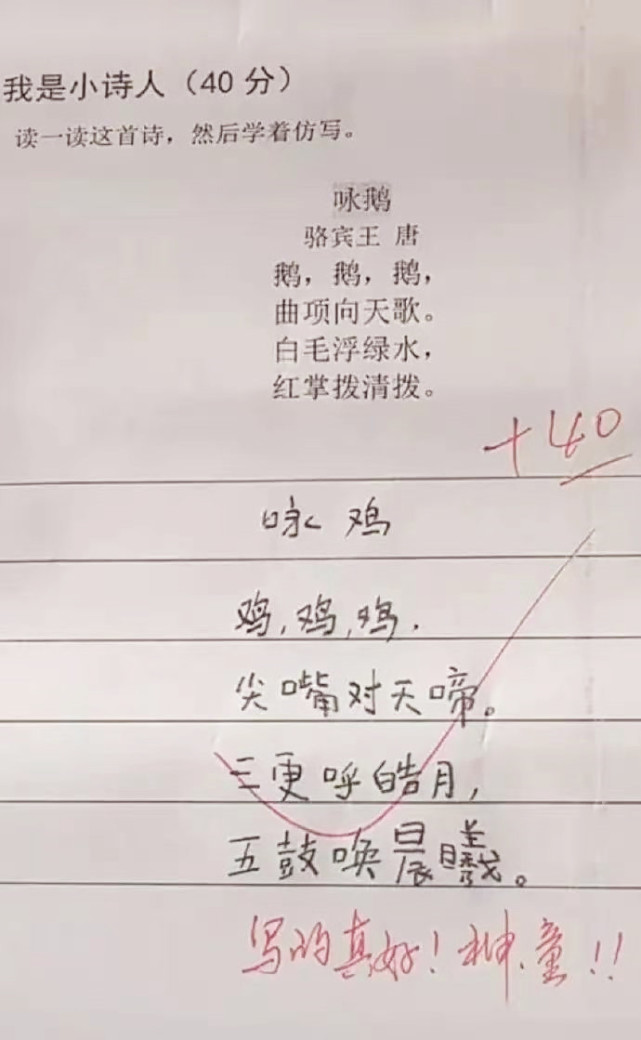 我是小诗人（40 分）
读一读这首诗，然后学着仿写。
咏鹅
骆宾王 唐
鹅，鹅，鹅，
曲项向天歌。
白毛浮绿水，
红掌拨清拨。
+40
咏 鸡
鸡，鸡，鸡．
尖嘴对天啼。
三更呼皓月，
五鼓唤晨曦。
写的真好！神童！！